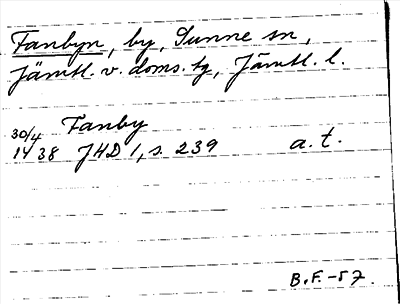 Fanbyn, by, Sunne sn,
Jämtl. v. doms. tg, Jämtl. l.
30/4 Fanby
1438 JHD 1, s. 239 a. t.
B.F.-57.